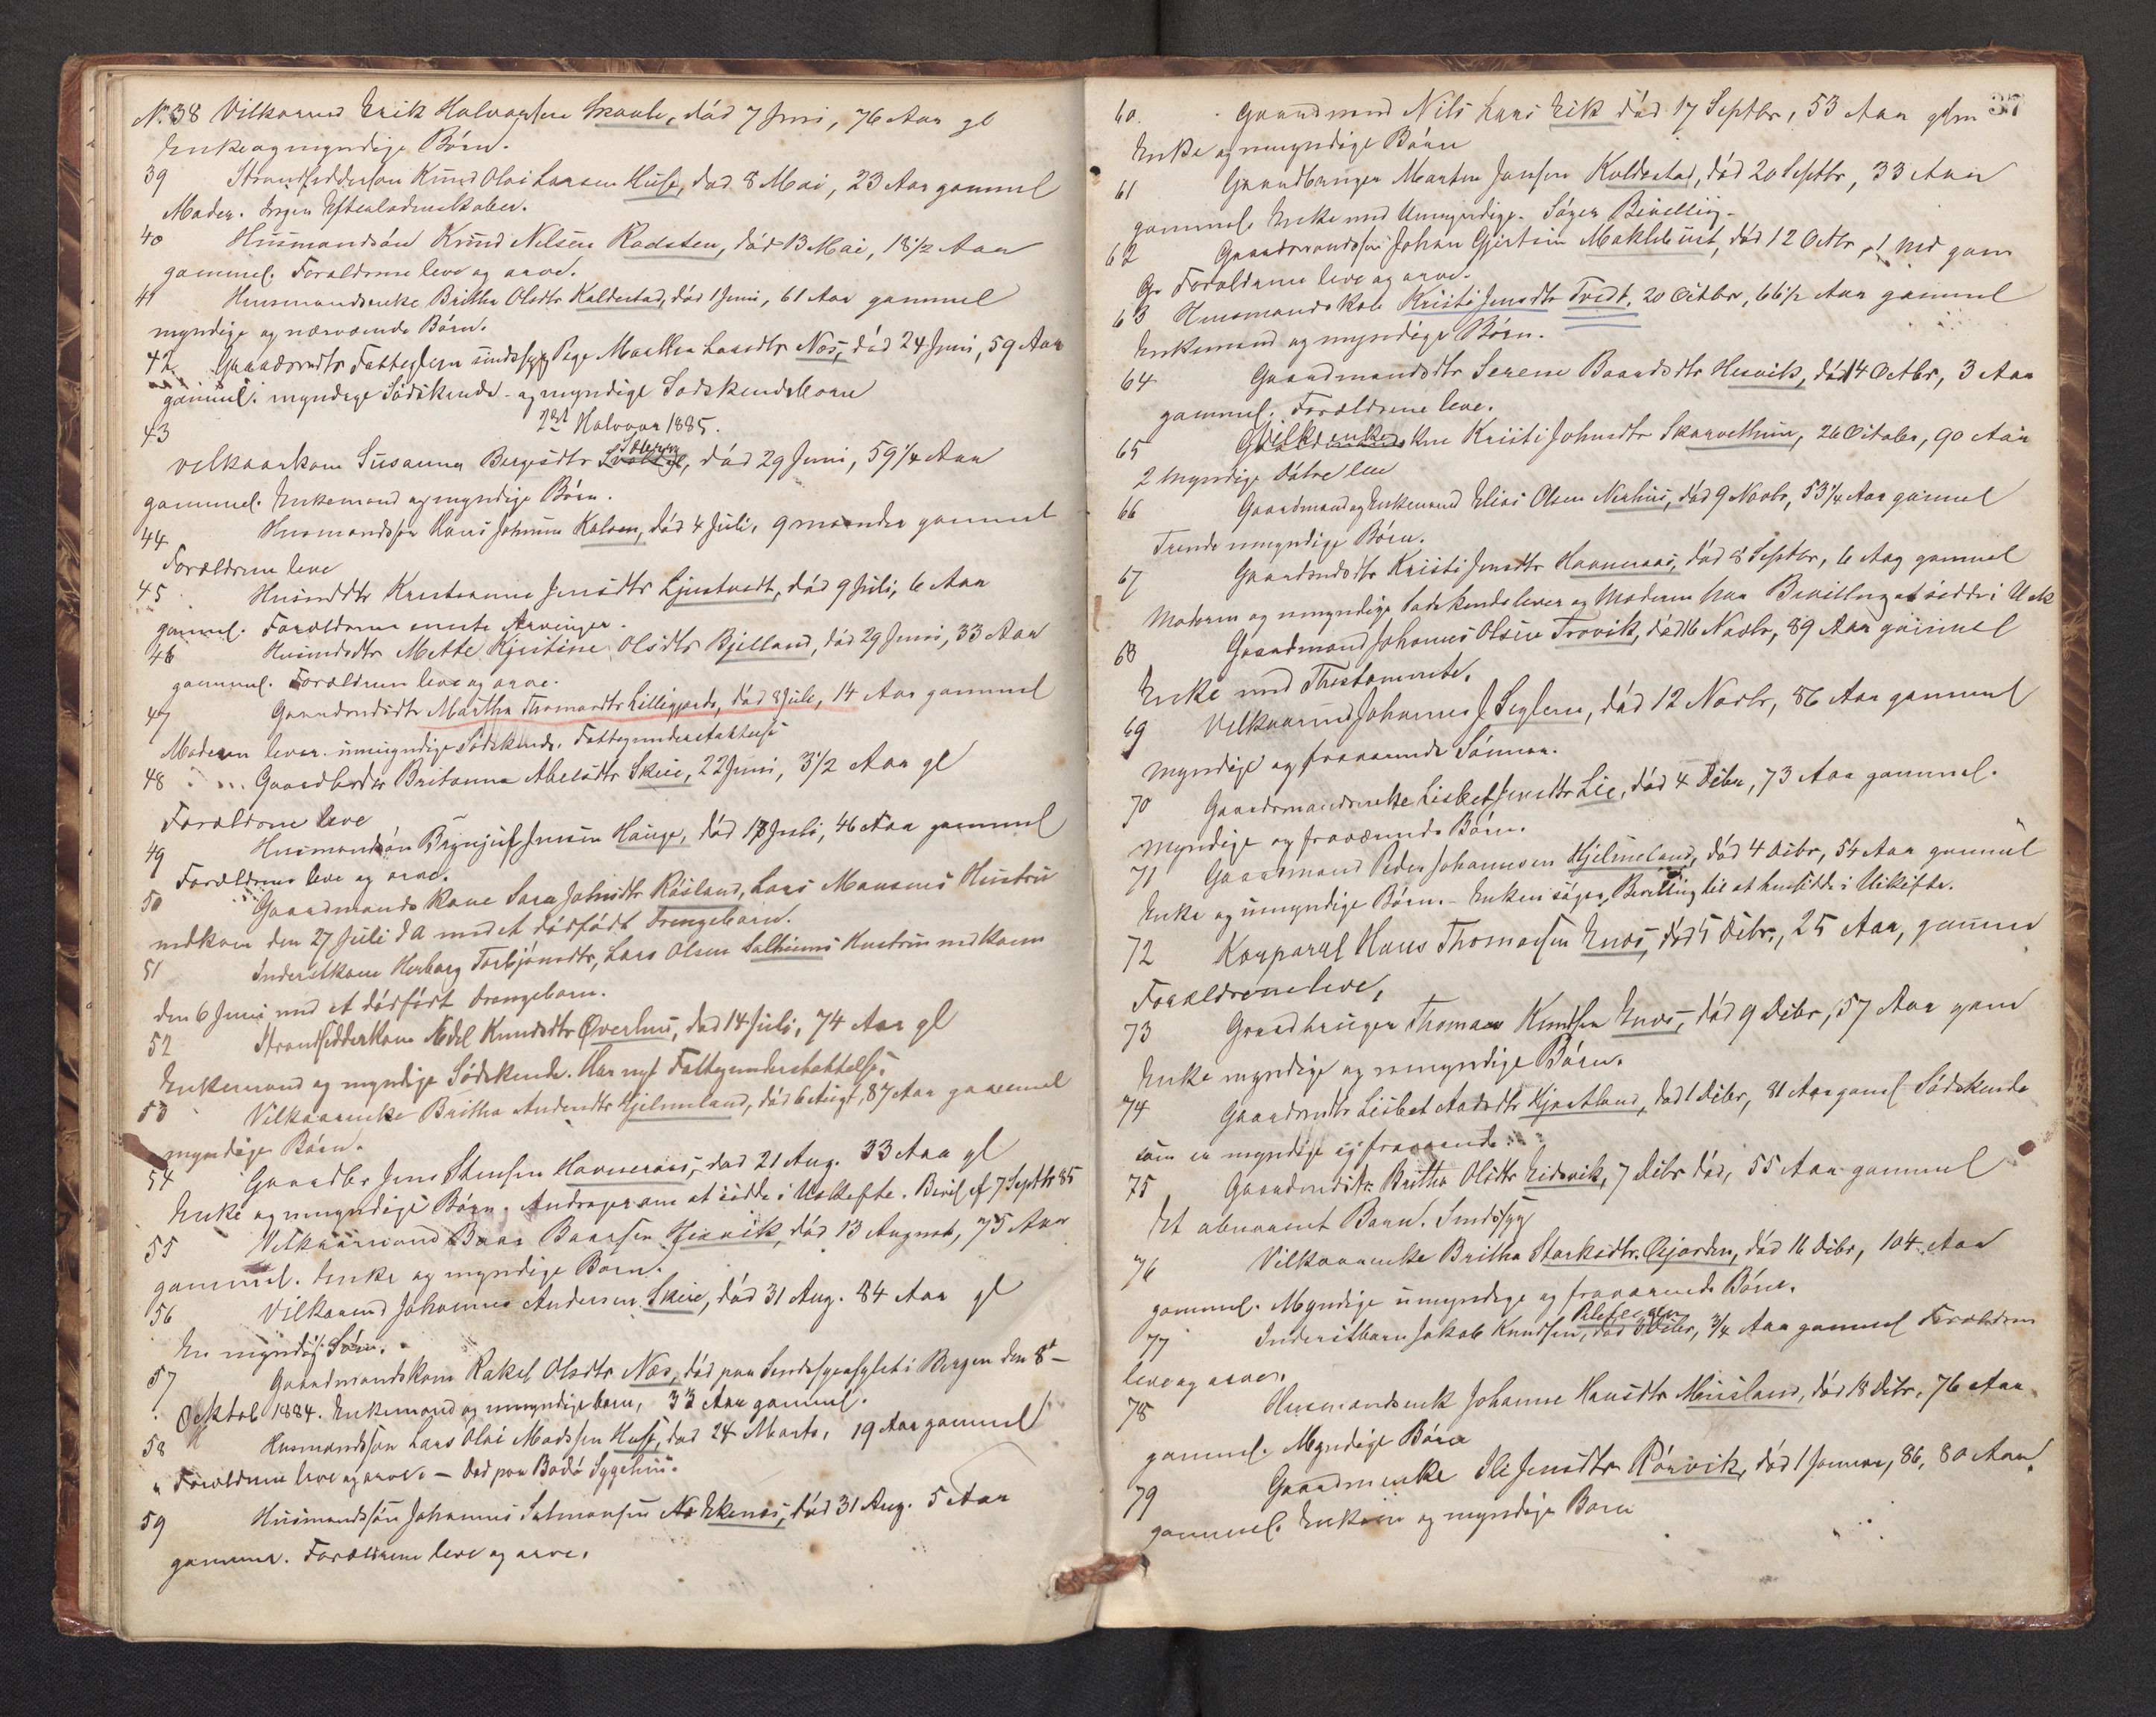 No. 38 Vilkaarmd Erik Halvorsen Skaale, død 7 Juni, 76 Aar gl
Enke og myndige Börn.
39 Strandsidderson Knud Olai Larsen Huse, død 8 Mai, 23 Aar gammel
Moder. Ingen Efterladenskaber.
40 Husmandsön Knud Nilsen Kadsten, død 13 Mai, 18 1/2 Aar
gammel. Forældrene leve og arve.
41 Husmandsenke Britha Olsdtr Kaldestad, død 1 Juni, 61 Aar gammel
myndige og nærværende Börn.
42 Gaardmdtr Fattiglem sindssyg Pige Martha Larsdtr Næs, død 24 Juni, 59 Aar
gammel. myndige Södskende og myndige Sødskendebørn
2det Halvaar 1885.
43
Vilkaarkone Susanna Børgesdtr Solesnæs, död 29 Juni, 59 1/4 Aar
gammel. Enkemand og myndige Börn.
44 Husmandssøn Hans Johnsen Kalven, död 4 Juli, 9 maaneder gammel
Forældrene leve
45 Husmddtr Kristianne Jensdtr Ljustvedt, död 9 Juli, 6 Aar
gammel. Forældrene eneste Arvinger.
46 Husmdsdtr Mette Kjirstine Olsdtr Bjelland, död 29 Juni, 33 Aar
gammel. Forældrene leve og arve.
47 Gaardmdsdtr Martha Thomasdtr Lillegjerde, död 8 Juli, 14 Aar gammel
Moderen lever. umyndige Södskende. Fattigunderstøttelse
48 Gaardbrdtr Britanna Abelsdtr Skeie, 22 Juni, 3 1/2 Aar gl
Forældrene leve
49 Husmandsön Brynjulf Jensen Hauge, död 17 Juli, 46 Aar gammel
Forældrene leve og arve.
50 Gaardmands Kone Sara Johnsdtr Røisland, Lars Monsens Hustru
nedkom den 27 Juli d A med et dødfødt Drengebarn.
51 Inderstkone Herborg Torbjörnsdtr, Lars Olsen Salthuns Hustru nedkom
den 6 Juni med et dödfödt Drengebarn.
52 Strandsidderkone Adel Knudsdtr Øverhus, død 14 Juli, 74 Aar gl
Enkemand og myndige Södskende. Har nydt Fattigunderstøttelse.
53 Vilkaarenke Britha Andersdtr Hjelmeland, död 6 Augt, 87 Aar gammel
myndige Børn.
54 Gaardbr Jens Stensen Havneraas, død 21 Aug. 33 Aar gl
Enke og umyndige Børn. Andrager om at sidde i Uskifte. Bevil af 7 Septbr 85
55 Vilkaarmand Baar Baarsen Hisvik, död 13 August, 75 Aar
gammel. Enke og myndige Børn.
56 Vilkaarmd Johannes Andersen Skeie, död 31 Aug. 84 Aar gl
En myndig Søn.
57 Gaardmandskone Rakel Olsdtr Næs, död paa Sindssygeasylet i Bergen den 8de
Oktob 1884. Enkemand og umyndige børn, 33 Aar gammel.
58 Husmandssøn Lars Olai Madssen Huse, død 24 Marts, 19 Aar gammel
Forældrene leve og arve. – Død paa Bodø Sygehus.
59 Husmandssön Johannes Salmonsen Nø Ekenæs, död 31 Aug. 5 Aar
gammel. Forældrene leve og arve.
37
60. Gaardmand Nils Lars Eik död 17 Septbr, 53 Aar glm
Enke og umyndige Börn
61 Gaardbruger Marten Jansen Koldestad, död 20 Septbr, 33 Aar
gammel. Enke med Umyndige. Söger Bevilling.
62 Gaardmandssøn Johan Gjertsen Maklebust, död 12 Octbr, 1 Md gam
Gr. Forældrene leve og arve.
63 Husmandskone Kristi Jensdtr Tvedt, 20 Octbr, 66 1/2 Aar gammel
Enkemand og myndige Börn.
64 Gaardmandsdtr Serene Baardsdtr Hesvik, död 14 Octbr, 3 Aar
gammel. Forældrene leve.
65 Vilk kone Kristi Johnsdtr Skarvethun, 26 October, 90 Aar
2 myndige Døtre leve
66 Gaardmand og Enkemand Elias Olsen Nerhus, död 9 Novbr, 53 1/4 Aar gammel
Trende umyndige Börn.
67 Gaardmdsdtr Kristi Jensdtr Havneraas, död 8 Septbr, 6 Aar gammel
Moderen og umyndige Sødskende lever og Moderen har Bevilling at sidde i Usk
68 Gaardmand Johannes Olsen Trovik, död 16 Novbr, 89 Aar gammel
Enke med Thestamente.
69 Vilkaarmd Johannes J Seglem, död 12 Novbr, 86 Aar gammel
myndige og fraværende Sønner.
70 Gaardmandsenke Lisbet Jensdtr Lie, död 4 Decbr, 73 Aar gammel.
myndige og fraværende Börn.
71 Gaardmand Peder Johannesen Hjelmeland, död 4 Decbr, 54 Aar gammel
Enke og umyndige Börn. – Enken søger Bevilling til at hensidde i Uskifte.
72 Korporal Hans Thomassen Enæs, död 5 Decbr, 25 Aar, gammel
Forældrene leve,
73 Gaardbruger Thomas Knudsen Enæs, död 9 Decbr, 57 Aar gam
Enke myndige og umyndige Børn.
74 Gaardmdtr Lisbet Aadsdtr Hjortland, død 1 Decbr, 81 Aar gaml Södskende
som er myndige og fraværende.
75 Gaardmdsdtr. Britha Olsdtr Eidsvik, 7 Decbr död, 55 Aar gammel
Et abnormt Barn. Sindssyg
76 Vilkaarenke Britha Størksdtr. Gjerden, död 16 Decbr, 104 Aar
gammel. Myndige umyndige og fraværende Börn.
77 Inderstbarn Jakob Knudsen, död 3 Decbr, 3/4 Aar gammel Forældrene
leve og arver.
78 Husmandsenk Johanne Hansdtr Meisland, död 18 Decbr, 76 Aar
gammel. Myndige Börn
79 Gaardmenke Ili Jensdtr Rörvik, död 1 Januar, 86, 80 Aar
gammel. Enken og myndige Børn